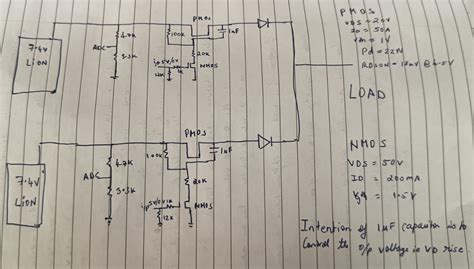 PMOS
VDS = 20V
ID = 50A
Vth = 1V
Pd = 22W
RDSON = 17mΩ @ 4.5V
LOAD
NMOS
VDS = 50V
ID = 200mA
Vgs = 1.5V
Intention of 1uF capacitor is to
control the o/p voltage i.e VD rise.
7.4V
LiON
ADC
4.7K
3.3K
PMOS
100K
1uF
20K
NMOS
7.4V
LiON
ADC
4.7K
3.3K
PMOS
100K
1uF
20K
NMOS
12K